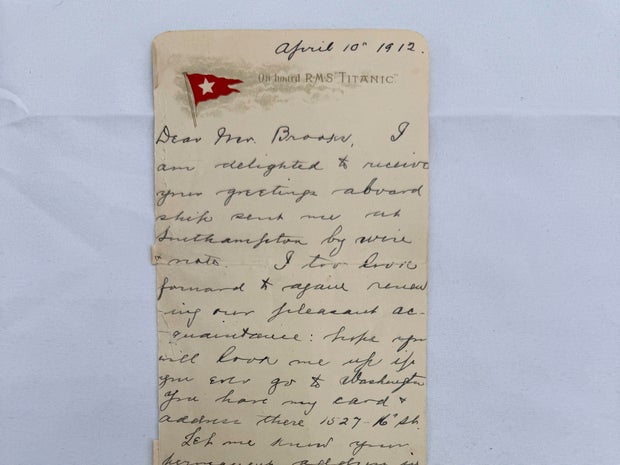 April 10" 1912.
On board R.M.S. "TITANIC"
Dear Mr. Brooks, I
am delighted to receive
your greetings aboard
ship sent me at
Southampton by wire
& note. I too look
forward to again renew
ing our pleasant ac-
quaintance: hope you
will look me up if
you ever go to Washington
You have my card &
address there 1527-16" St.
Let me know your
permanent address in